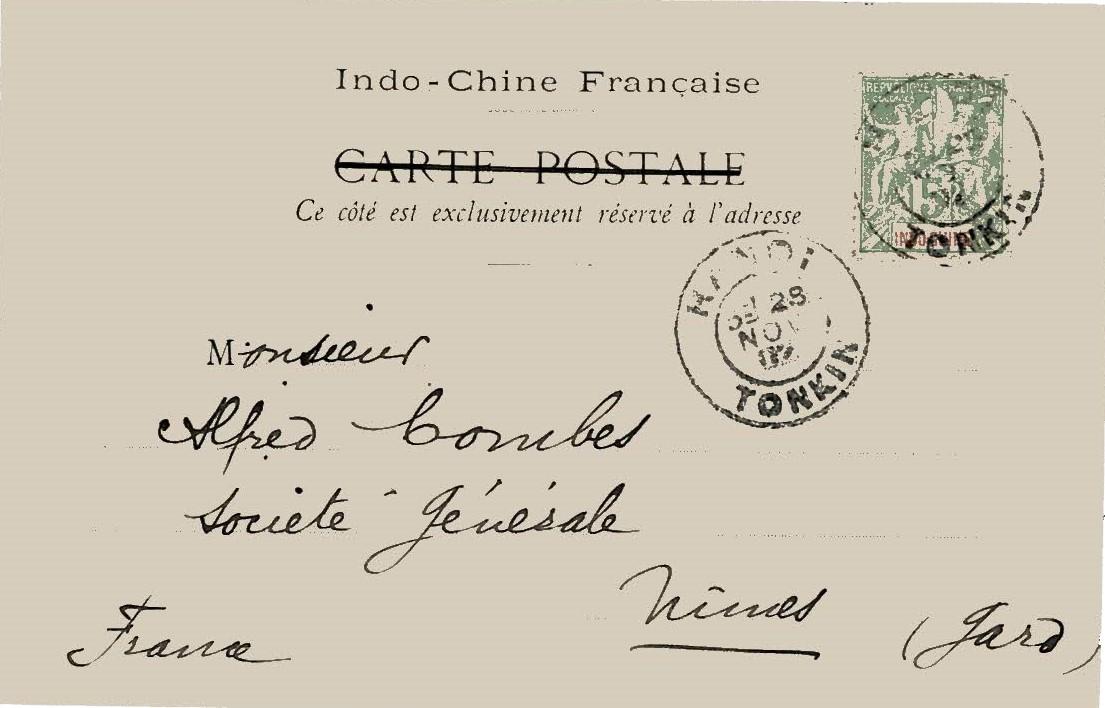 Indo-Chine Française
CARTE POSTALE
Ce côté est exclusivement réservé à l'adresse
RÉPUBLIQUE FRANÇAISE
5
INDO-CHINE
TONKIN
HANOI
28
NOV
TONKIN
Monsieur
Alfred Combes
Société Générale
Nîmes (Gard)
France